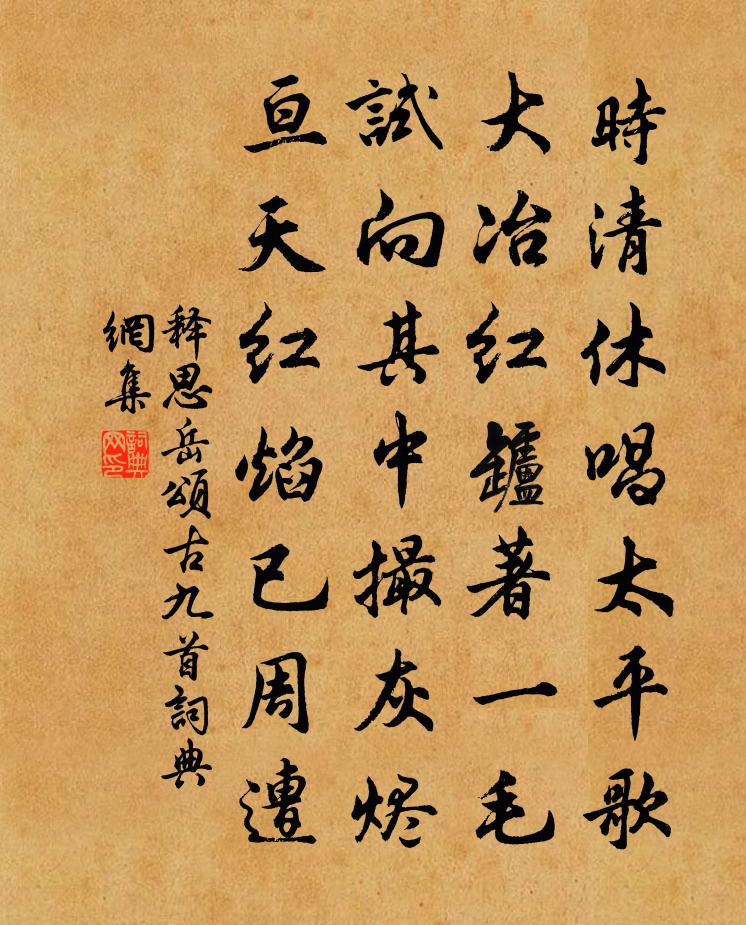 時清休唱太平歌
大冶红鑪著一毛
試向其中撮灰烬
亘天红焰已周遭
释思岳頌古九首詞典
網集
詞典
网印